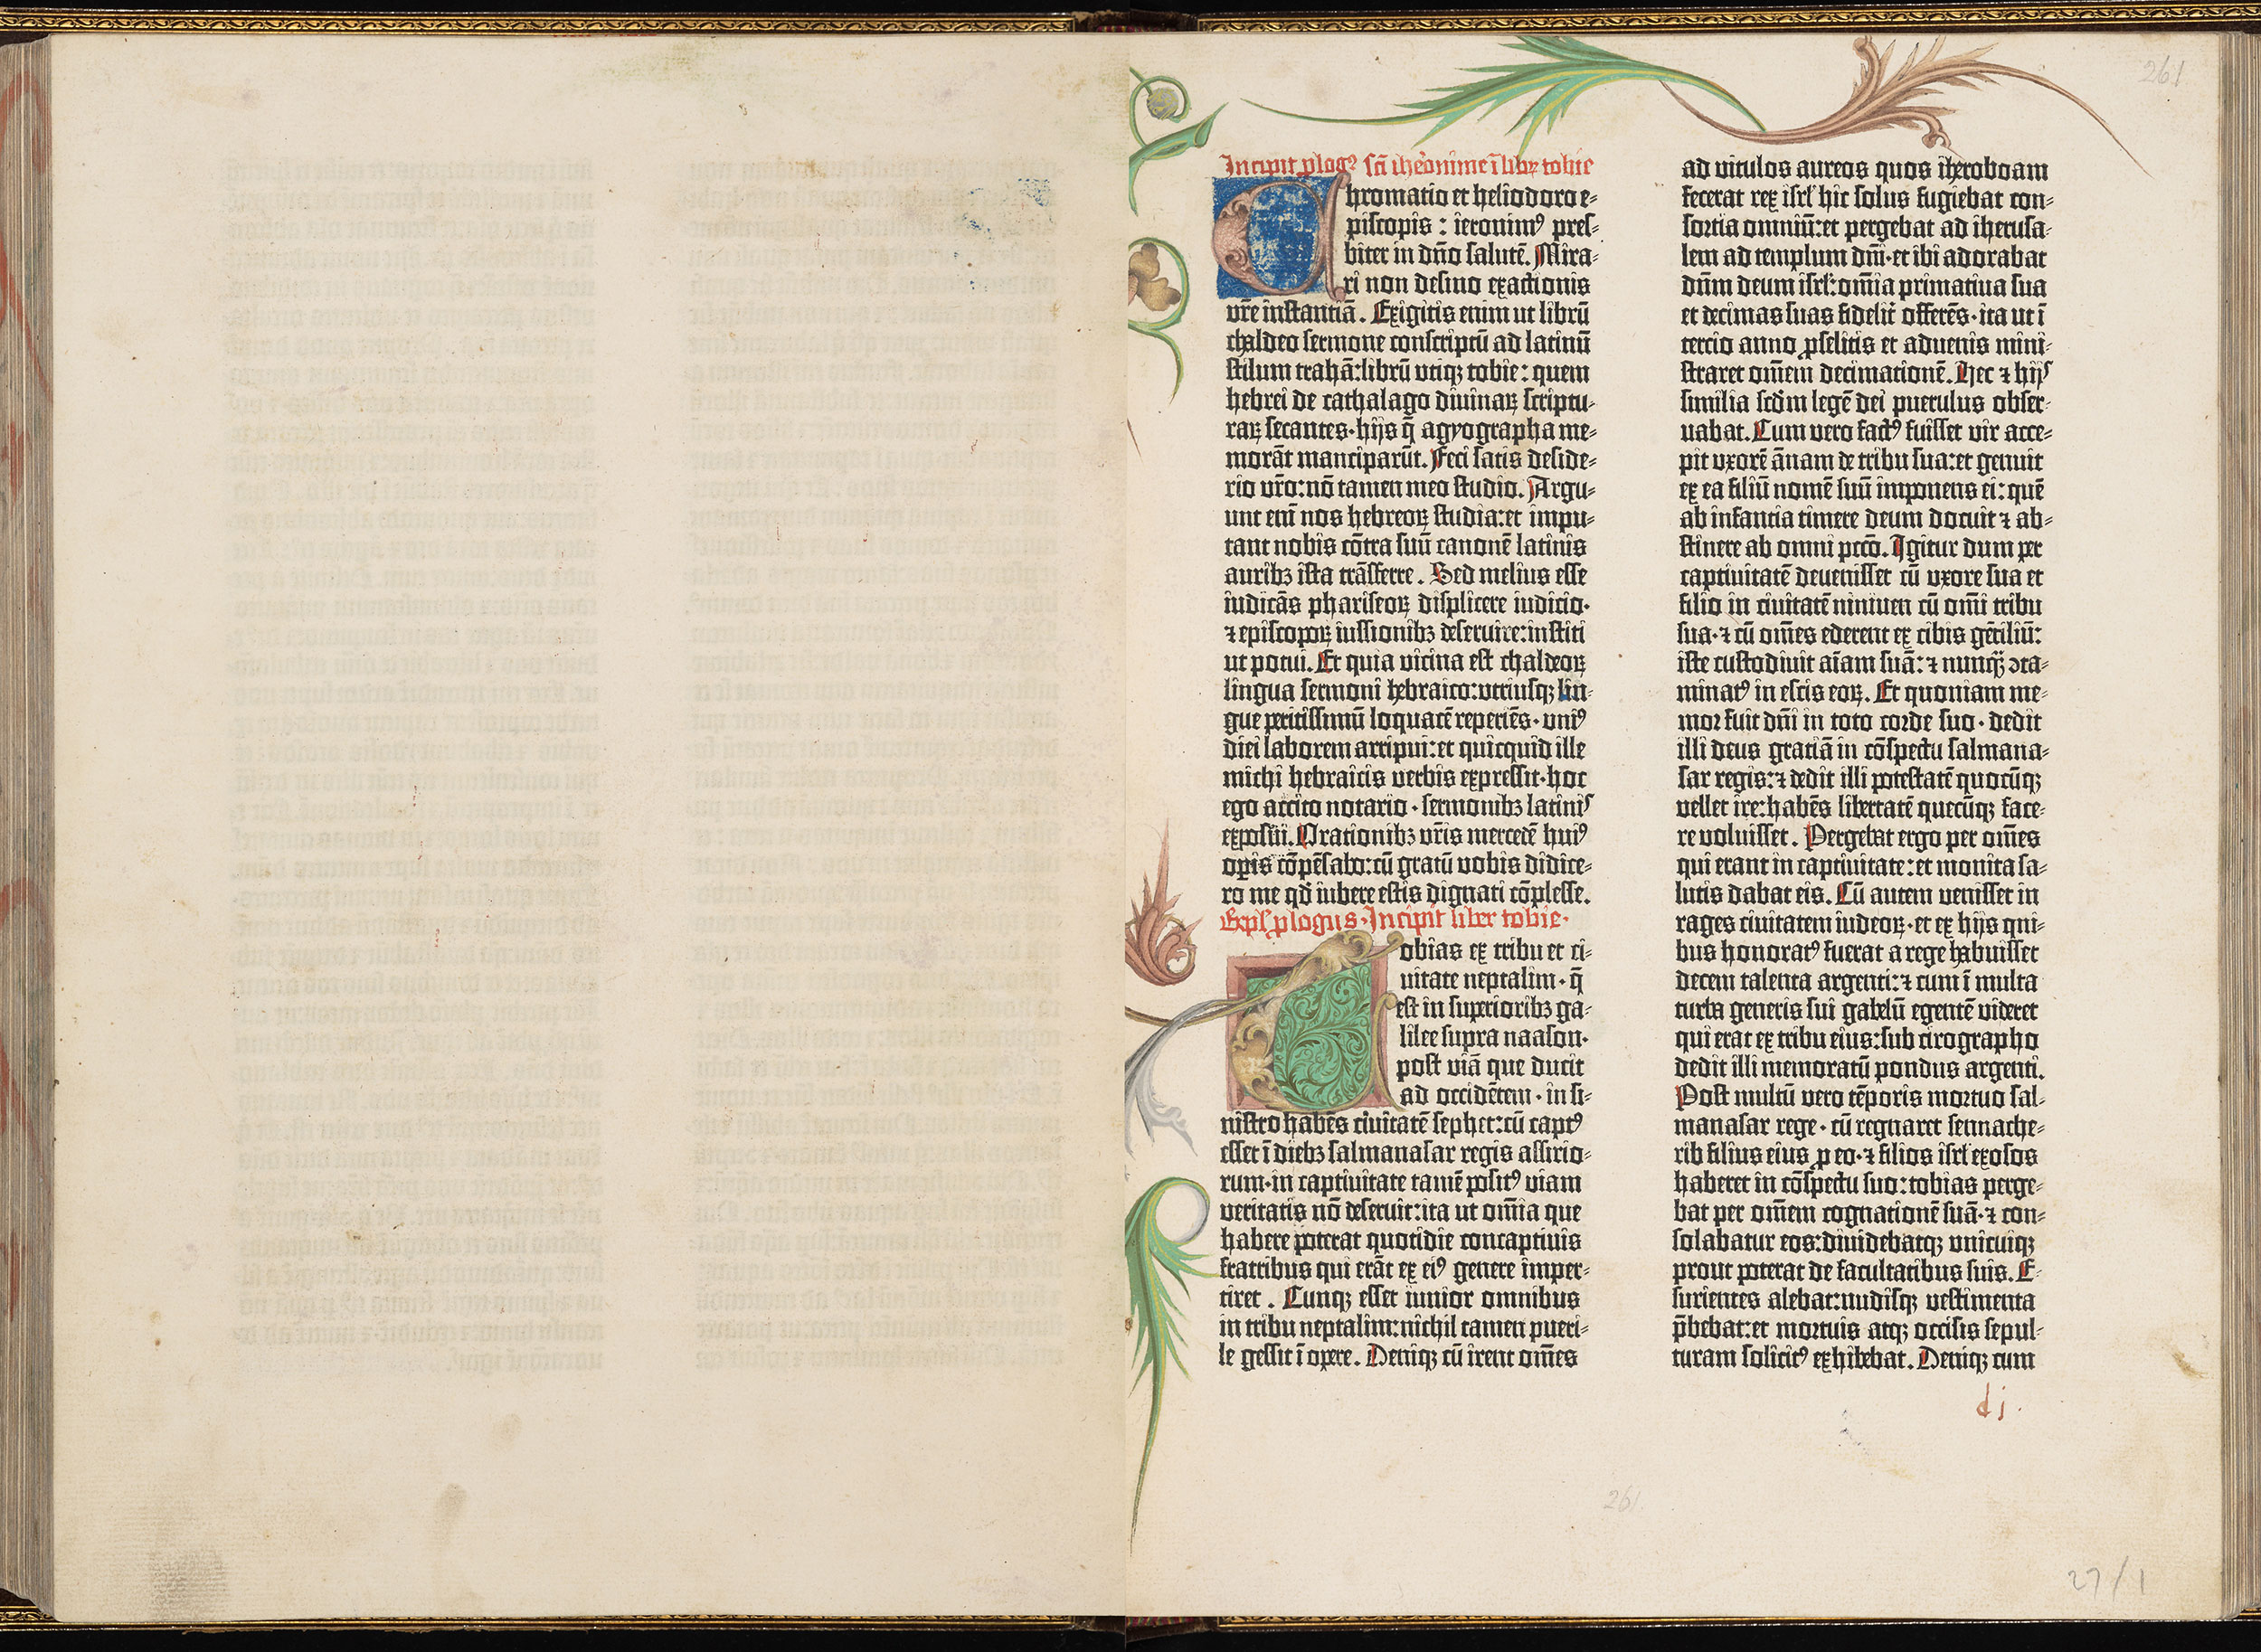 261
Incipit ꝓlogꝰ sc̄i iheronimi ī libꝝ tobie
Chromatio et heliodoro e-
piscopis : ieronimꝰ pres-
biter in dn̄o salutē. Mira-
ri non desino exactionis
vr̄e instantiā. Exigitis enim ut librū
chaldeo sermone conscriptū ad latinū
stilum trahā: librū utiqꝫ tobie: quem
hebrei de cathalago divinaꝝ scriptu-
raꝝ secantes· hijs q̄ agyographa me-
morāt manciparūt. Feci satis deside-
rio vr̄o: nō tamen meo studio. Argu-
unt eni̅ nos hebreoꝝ studia: et impu-
tant nobis cōtra suū canonē latinis
auribꝫ ista trāsferre. Sed melius esse
iudicās phariseoꝝ displicere iudicio·
⁊ episcopoꝝ iussionibꝫ deservire: institi
ut potui. Et quia vicina est chaldeoꝝ
lingua sermoni hebraico: utriusqꝫ lin-
gue peritissimū loquacē reperiēs· uniꝰ
diei laborem arripui: et quicquid ille
michi hebraicis verbis expressit· hoc
ego accito notario · sermonibꝫ latinis
exposui. Orationibꝫ vr̄is mercedē huiꝰ
oꝑis cōpēsabo: cū gratū vobis didice-
ro me qd̄ iubere estis dignati cōplesse.
Expl̓ ꝓlogus· Incipit liber tobie·
Tobias ex tribu et ci-
vitate neptalim · q̄
est in superioribꝫ ga-
lilee supra naason·
post viā que ducit
ad occidētem · in si-
nistro habēs civitatē sephet: cū captꝰ
esset ī diebꝫ salmanasar regis assirio-
rum· in captivitate tamē positꝰ viam
veritatis nō deseruit: ita ut om̄ia que
habere poterat quotidie concaptivis
fratribus qui erāt ex eiꝰ genere imper-
tiret . Cunqꝫ esset iunior omnibus
in tribu neptalim: nichil tamen pueri-
le gessit ī opere. Deniqꝫ cū irent om̄es
ad vitulos aureos quos iheroboam
fecerat rex isrl̓ hic solus fugiebat con-
sortia omniū: et pergebat ad iherusa-
lem ad templum dn̄i· et ibi adorabat
dn̄m deum isrl̓: om̄ia primativa sua
et decimas suas fidelit̓ offerēs· ita ut ī
tercio anno ꝓselitis et advenis mini-
straret om̄em decimationē. Hec ⁊ hijs
similia scd̄m legē dei puerulus obser-
vabat. Cum vero factꝰ fuisset vir acce-
pit uxorē ānam de tribu sua: et genuit
ex ea filiū nomē suū imponens ei: quē
ab infantia timere deum docuit ⁊ ab-
stinere ab omni pcc̄o. Igitur dum per
captivitatē devenisset cū uxore sua et
filio in civitatē niniven cū om̄i tribu
sua· ⁊ cū om̄es ederent ex cibis gētiliū:
iste custodivit aīam suā: ⁊ nunqꝫ̄ ꝯta-
minatꝰ in escis eoꝝ. Et quoniam me-
mor fuit dn̄i in toto corde suo · dedit
illi deus gratiā in cōspectu salmana-
sar regis: ⁊ dedit illi potestatē quocūqꝫ
vellet ire: habēs libertatē quecūqꝫ face-
re voluisset . Pergebat ergo per om̄es
qui erant in captivitate: et monita sa-
lutis dabat eis. Cū autem venisset in
rages civitatem iudeoꝝ· et ex hijs qui-
bus honoratꝰ fuerat a rege habuisset
decem talenta argenti: ⁊ cum ī multa
turba generis sui gabelū egentē videret
qui erat ex tribu eius: sub cirographo
dedit illi memoratū pondus argenti.
Post multū vero tēporis mortuo sal-
manasar rege · cū regnaret sennache-
rib filius eius ꝓ eo· ⁊ filios isrl̓ exosos
haberet in cōspectu suo: tobias perge-
bat per om̄em cognationē suā· ⁊ con-
solabatur eos: dividebatqꝫ unicuiqꝫ
prout poterat de facultatibus suis. E-
surientes alebat: nudisqꝫ vestimenta
p̄bebat: et mortuis atqꝫ occisis sepul-
turam solicitꝰ exhibebat. Deniqꝫ cum
d j .
261
27/1